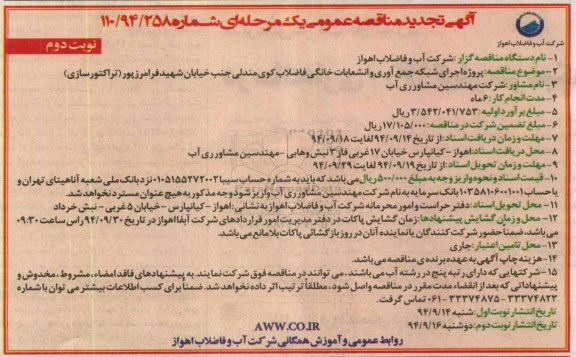 آگهی تجدید مناقصه عمومی یک مرحله ای شماره ۱۱۰/۹۴/۲۵۸
نوبت دوم
شرکت آب و فاضلاب اهواز
۱- نام دستگاه مناقصه گزار: شرکت آب و فاضلاب اهواز
۲- موضوع مناقصه: پروژه اجرای شبکه جمع آوری و انشعابات خانگی فاضلاب کوی مندلی جنب خیابان شهید فرامرزپور (تراکتورسازی)
۳- نام مشاور: شرکت مهندسین مشاور ری آب
۴- مدت انجام کار: ۶ ماه
۵- مبلغ برآورد اولیه: ۳/۵۴۲/۰۴۱/۷۵۳ ریال
۶- مبلغ تضمین شرکت در مناقصه: ۱۷۷/۱۰۵/۰۰۰ ریال
۷- مهلت و زمان دریافت اسناد: از تاریخ ۹۴/۰۹/۱۴ لغایت ۹۴/۰۹/۱۸
۸- محل دریافت اسناد: اهواز - کیانپارس خیابان ۱۷ غربی فاز ۳ نبش وهابی - مهندسین مشاور ری آب
۹- مهلت و زمان تحویل اسناد: از تاریخ ۹۴/۰۹/۱۹ لغایت ۹۴/۰۹/۲۹
۱۰- قیمت اسناد و نحوه واریز وجه به مبلغ ۵۰۰/۰۰۰ ریال می باشد که باید به شماره حساب سیبا ۰۱۰۵۱۵۵۲۷۲۰۰۲ نزد بانک ملی شعبه آناهیتای تهران و
یا حساب ۱۰۳۵۸۱۰۶۰۰۱۰۰۱ بانک سرمایه به نام شرکت مهندسین مشاور ری آب واریز شود وجه مذکور به هیچ عنوان مسترد نخواهد شد.
۱۱- محل تحویل اسناد: دفتر حراست و امور محرمانه شرکت آب و فاضلاب اهواز به نشانی: اهواز - کیانپارس - خیابان ۵ غربی - نبش خرداد
۱۲- محل و زمان گشایش پیشنهادها: زمان گشایش پاکات در دفتر مدیریت امور قراردادهای شرکت آبفا اهواز در تاریخ ۹۴/۰۹/۳۰ راس ساعت ۰۹:۳۰
می باشد، ضمنا حضور شرکت کنندگان یا نماینده آنان در روز بازگشائی پاکات بلامانع می باشد.
۱۳- محل تامین اعتبار: جاری
۱۴- هزینه چاپ آگهی به عهده برنده ی مناقصه می باشد.
۱۵- شرکتهایی که دارای رتبه پنج در رشته آب می باشند، می توانند در مناقصه فوق شرکت نمایند. به پیشنهادهای فاقد امضاء، مشروط، مخدوش و
پیشنهاداتی که بعد از انقضاء مدت مقرر در مناقصه واصل شود، مطلقا ترتیب اثر داده نخواهد شد. ضمنا برای کسب اطلاعات بیشتر می توان با شماره
۳۳۳۷۴۸۲۳ - ۳۳۳۷۴۸۷۵-۰۶۱ تماس گرفت.
تاریخ انتشار نوبت اول: شنبه ۹۴/۹/۱۴
تاریخ انتشار نوبت دوم: دوشنبه ۹۴/۹/۱۶
AWW.CO.IR
روابط عمومی و آموزش همگانی شرکت آب و فاضلاب اهواز